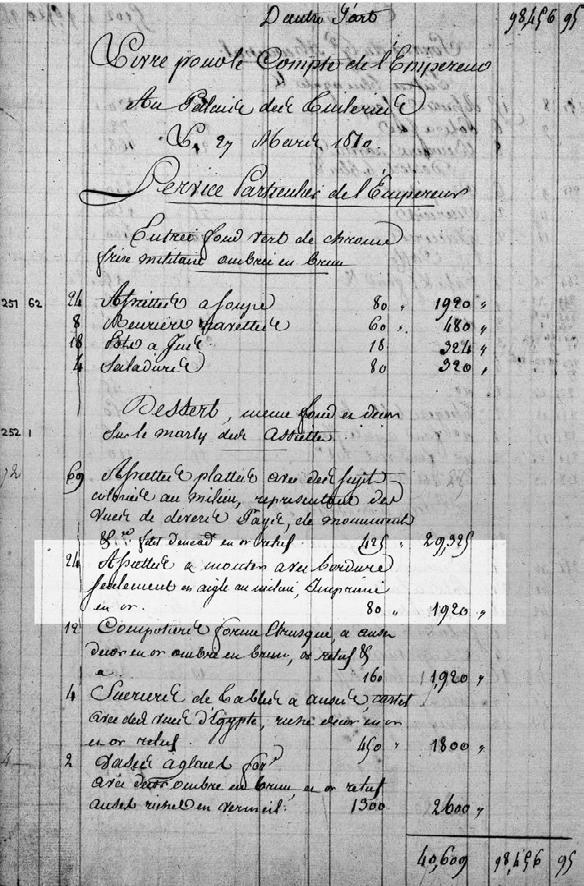 D'autre Part 98,456 95
Livré pour le Compte de l'Empereur
Au Palais des Tuileries
Le 27 Mars 1810
Service Particulier de l'Empereur
Entrée fond vert de chrome
frise militaire ombrée en brun
251 62 24 Assiettes a soupe 80 " 1920 "
8 Beurriers navettes 60 " 480 "
18 Pots a Jus 18 " 324 "
4 Saladiers 80 320 "
Dessert, meme fond et décor
252 1 Sur le marly des Assiettes
72 69 Assiettes plattes avec des sujets
coloriés au milieu, representant des
vues de divers Pays, de monuments
&.ca filet d'encad.t en or relief. 425 " 29,325
24 Assiettes a monter avec bordure
seulement en aigle au milieu, Imprimé
en or. 80 " 1920 "
12 Compotiers forme Etrusque, a anses
decor en or ombré en brun, or relief &
a. 160 1,920 "
4 Sucriers de Tables a anses
avec des vues d'Egypte, riche decor en or
en or relief. 450 " 1800 "
2 Vases a glaces for.e
avec ombré en brun, en or relief
anses riches en vermeil. 1300 2600 "
40,609 98,456 95